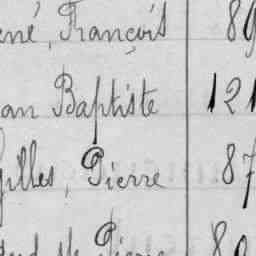 ené, François 89
an Baptiste 121
Gilles, Pierre 87
Pierre 80